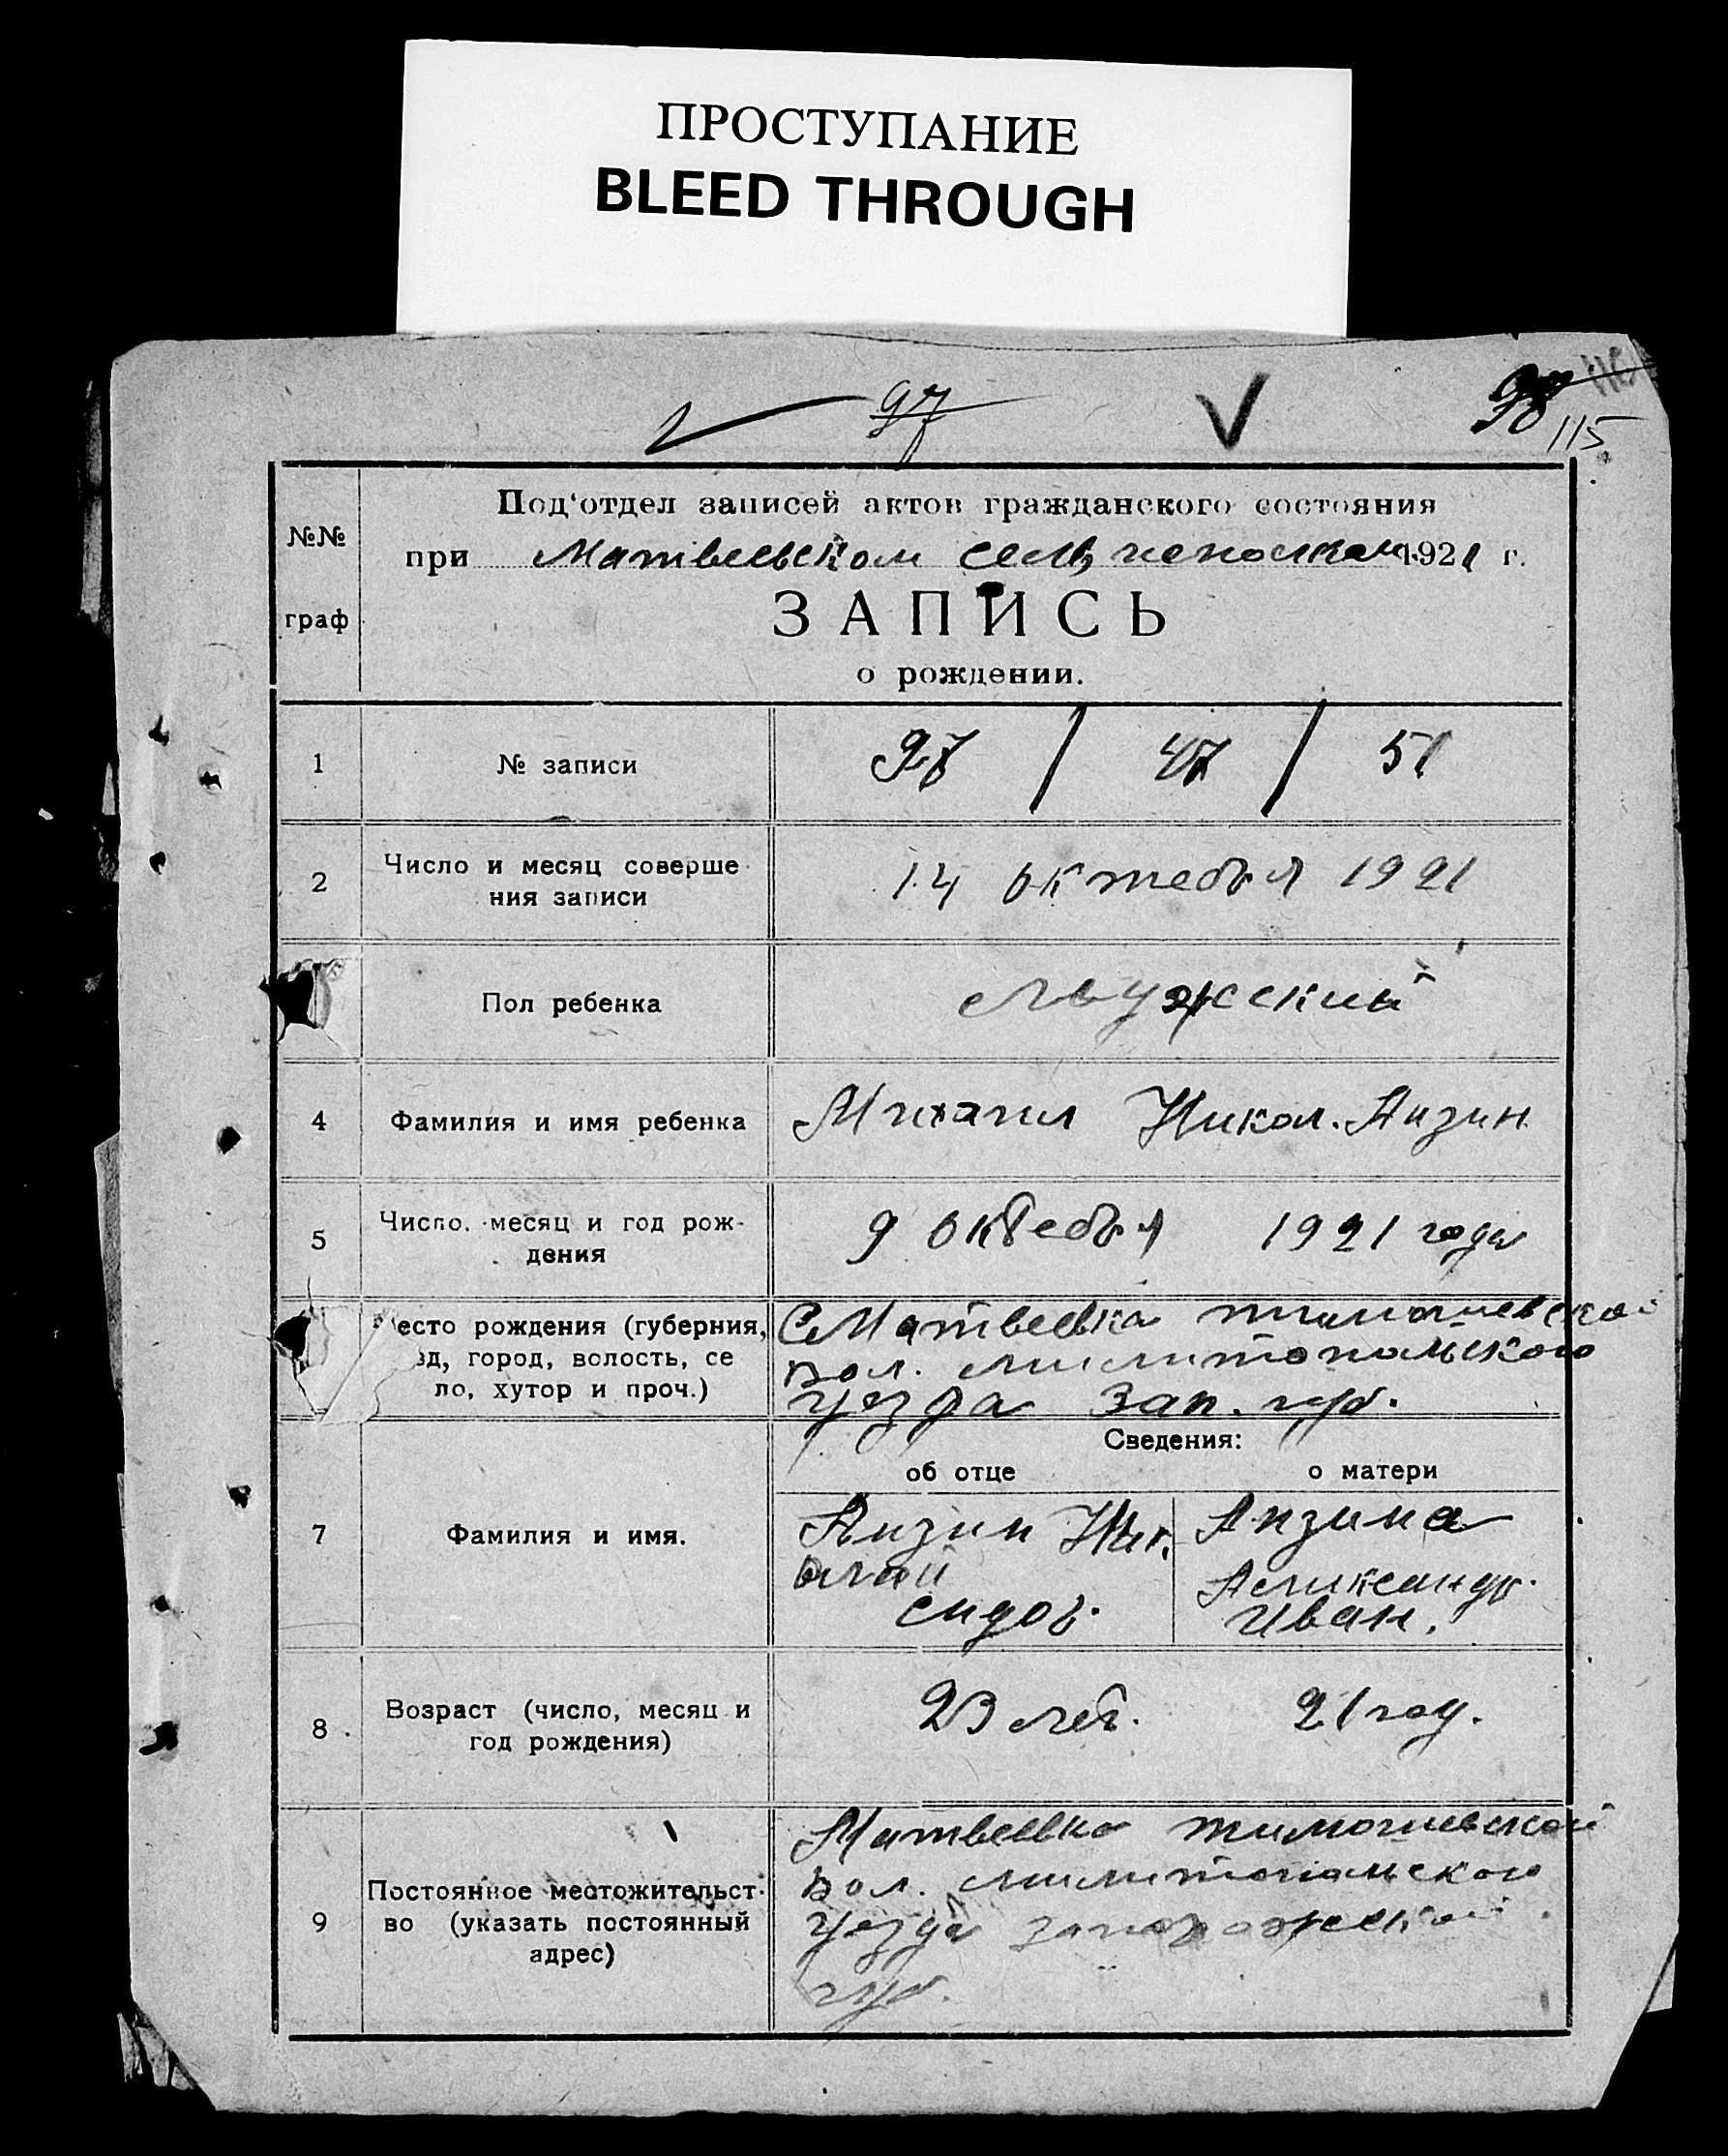 ПРОСТУПАНИЕ
BLEED THROUGH
97
98
115
Под'отдел записей актов гражданского состояния
№№
при Матвеевском сель 1921 г.
граф
ЗАПИСЬ
о рождении.
1 № записи 97 / 47 / 51
2 Число и месяц соверше
ния записи
14 октебря 1921
Пол ребенка Мужский
4 Фамилия и имя ребенка Михаил Никол. Анзин
5 Число. месяц и год рож-
дения
9 октебря 1921 года
есто рождения (губерния,
зд, город, волость, се
ло, хутор и проч.)
С Матвеевка тимошевской
вол. милитопольского
уезда Зап. губ.
Сведения:
об отце о матери
7 Фамилия и имя.
Анзин Ник.
олай
сидор.
Анзина
Александр.
Иван.
8 Возраст (число, месяц и
год рождения)
23 лет. 21 год.
9 Постоянное местожительст-
во (указать постоянный
адрес)
Матвеевка тимошевской
вол. милитопольского
уезда запорожской
губ.